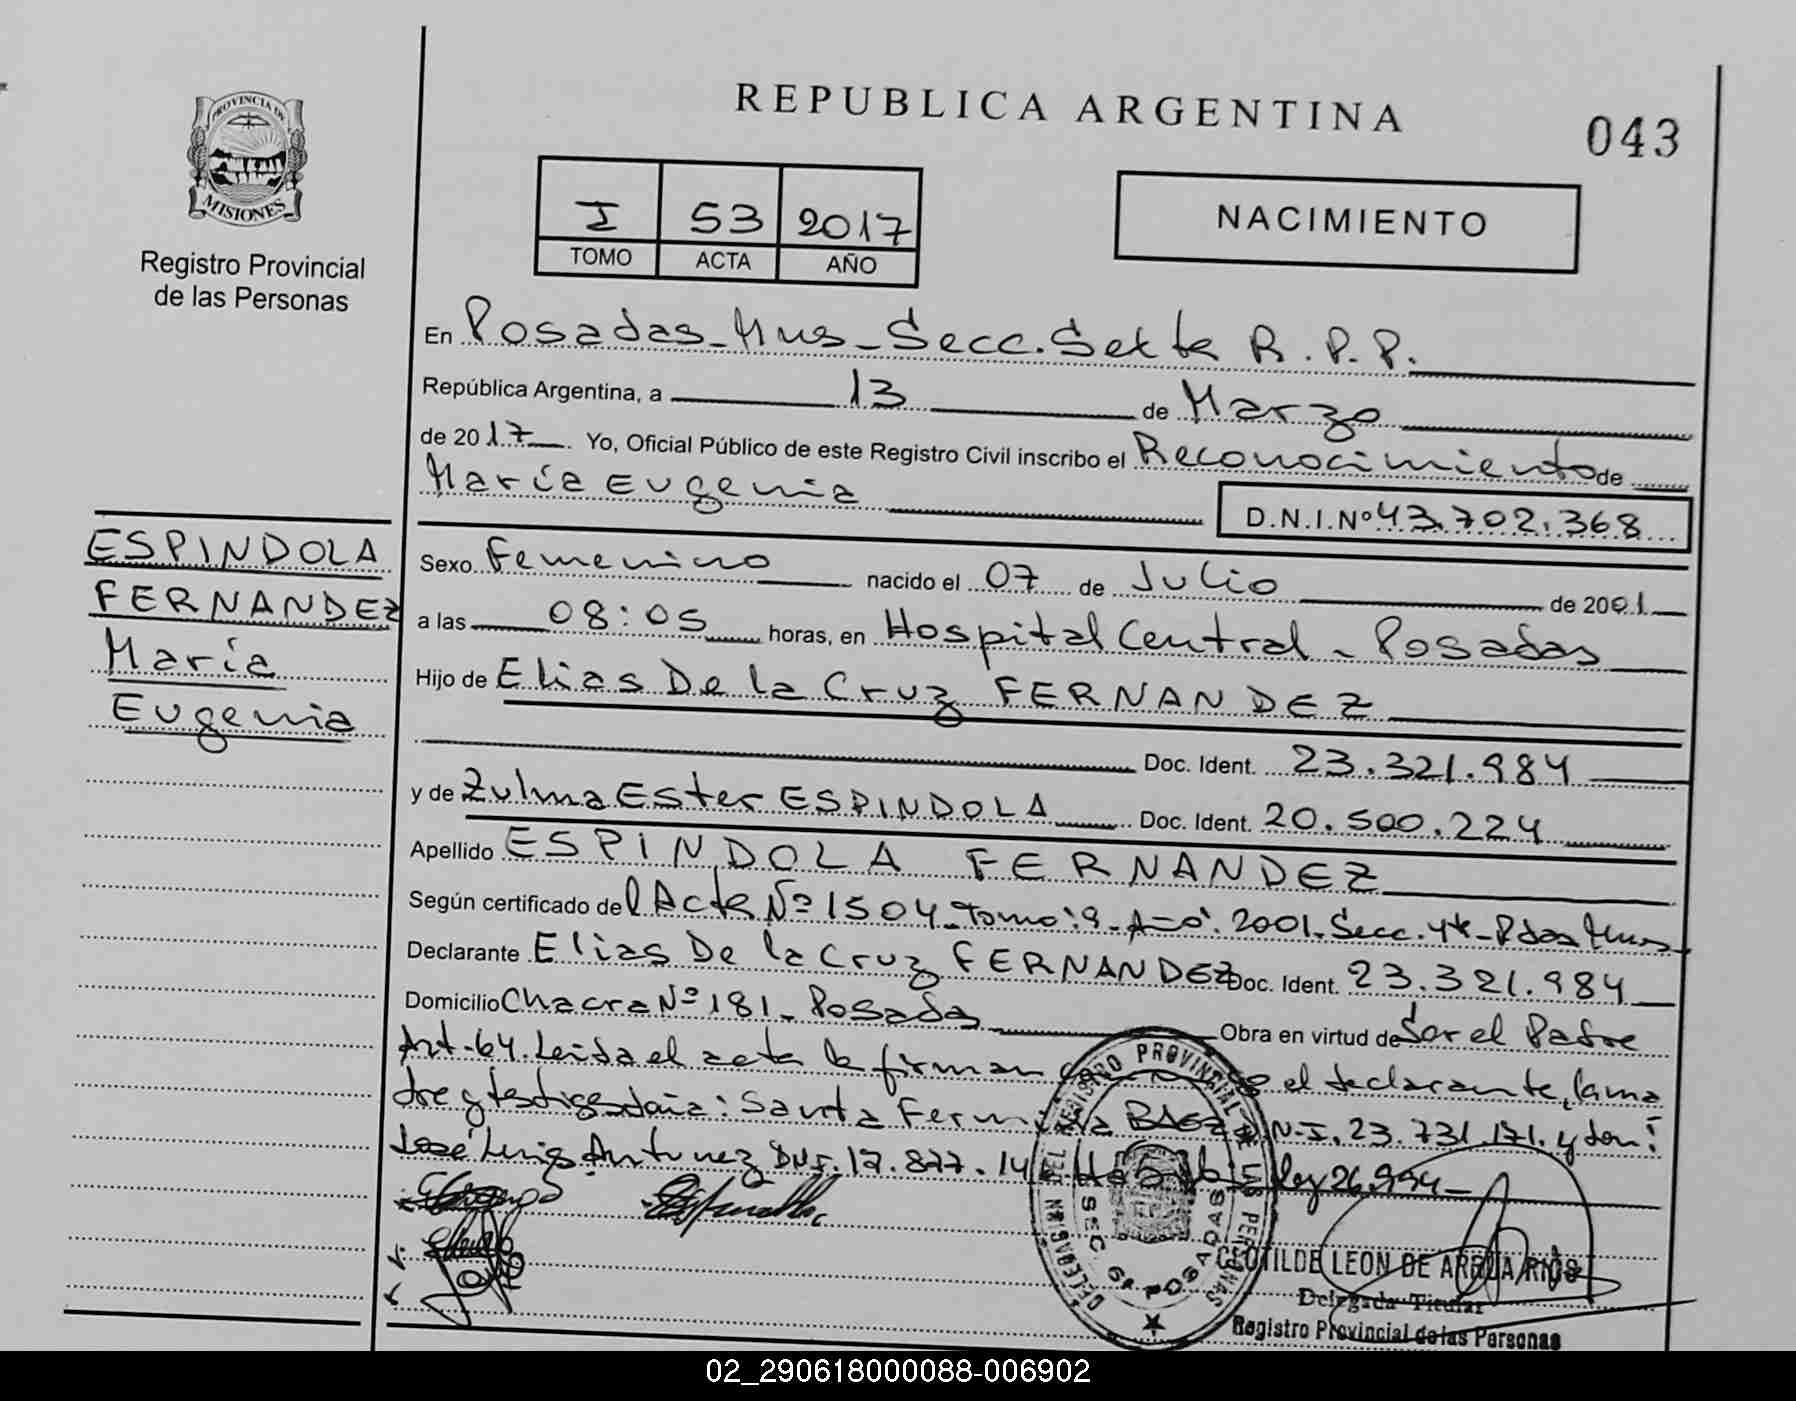 REPUBLICA ARGENTINA
043
PROVINCIA DE
MISIONES
Registro Provincial
de las Personas
I 53 2017
TOMO ACTA AÑO
NACIMIENTO
En Posadas - Mns - Secc. Sexta R.P.P.
República Argentina, a 13 de Marzo
de 2017. Yo, Oficial Público de este Registro Civil inscribo el Reconocimiento de
María Eugenia
D.N.I.Nº 43.702.368
ESPINDOLA
FERNANDEZ
María
Eugenia
Sexo Femenino nacido el 07 de Julio de 2001
a las 08:05 horas, en Hospital Central - Posadas
Hijo de Elias De la Cruz FERNANDEZ
Doc. Ident. 23.321.984
y de Zulma Ester ESPINDOLA Doc. Ident. 20.500.224
Apellido ESPINDOLA FERNANDEZ
Según certificado del Acta Nº 1504 - Tomo: 9 - Año: 2001. Secc. 4ta - Pdas Mns -
Declarante Elias De la Cruz FERNANDEZ Doc. Ident. 23.321.984
Domicilio Chacra Nº 181 - Posadas Obra en virtud de Ser el Padre
Art. 64. Leida el acta la firman el declarante, la ma
dre y testigos doña: Santa BAEZ N.I. 23.731.171. y don:
José Luis Antunez DNI. 17.877. Ley 26.994 -
DELEGACION DEL REGISTRO PROVINCIAL DE LAS PERSONAS
SEC. 6ª POSADAS
CLOTILDE LEON DE ARRUA RIOS
Delegada Titular
Registro Provincial de las Personas
02_290618000088-006902